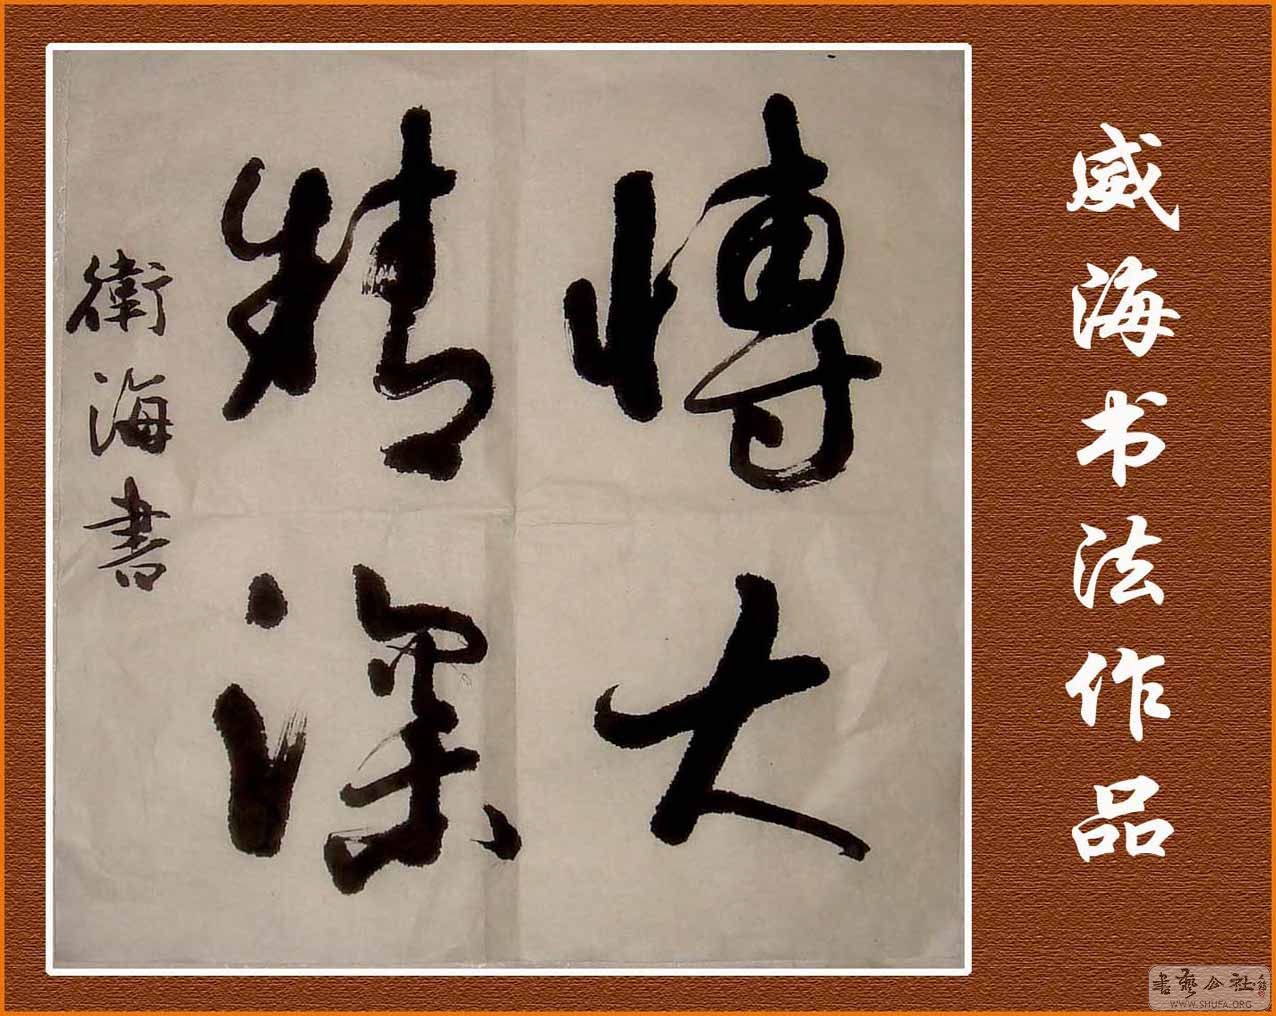 博大
精深
衛海書
威海书法作品
書藝公社
WWW.SHUFA.ORG